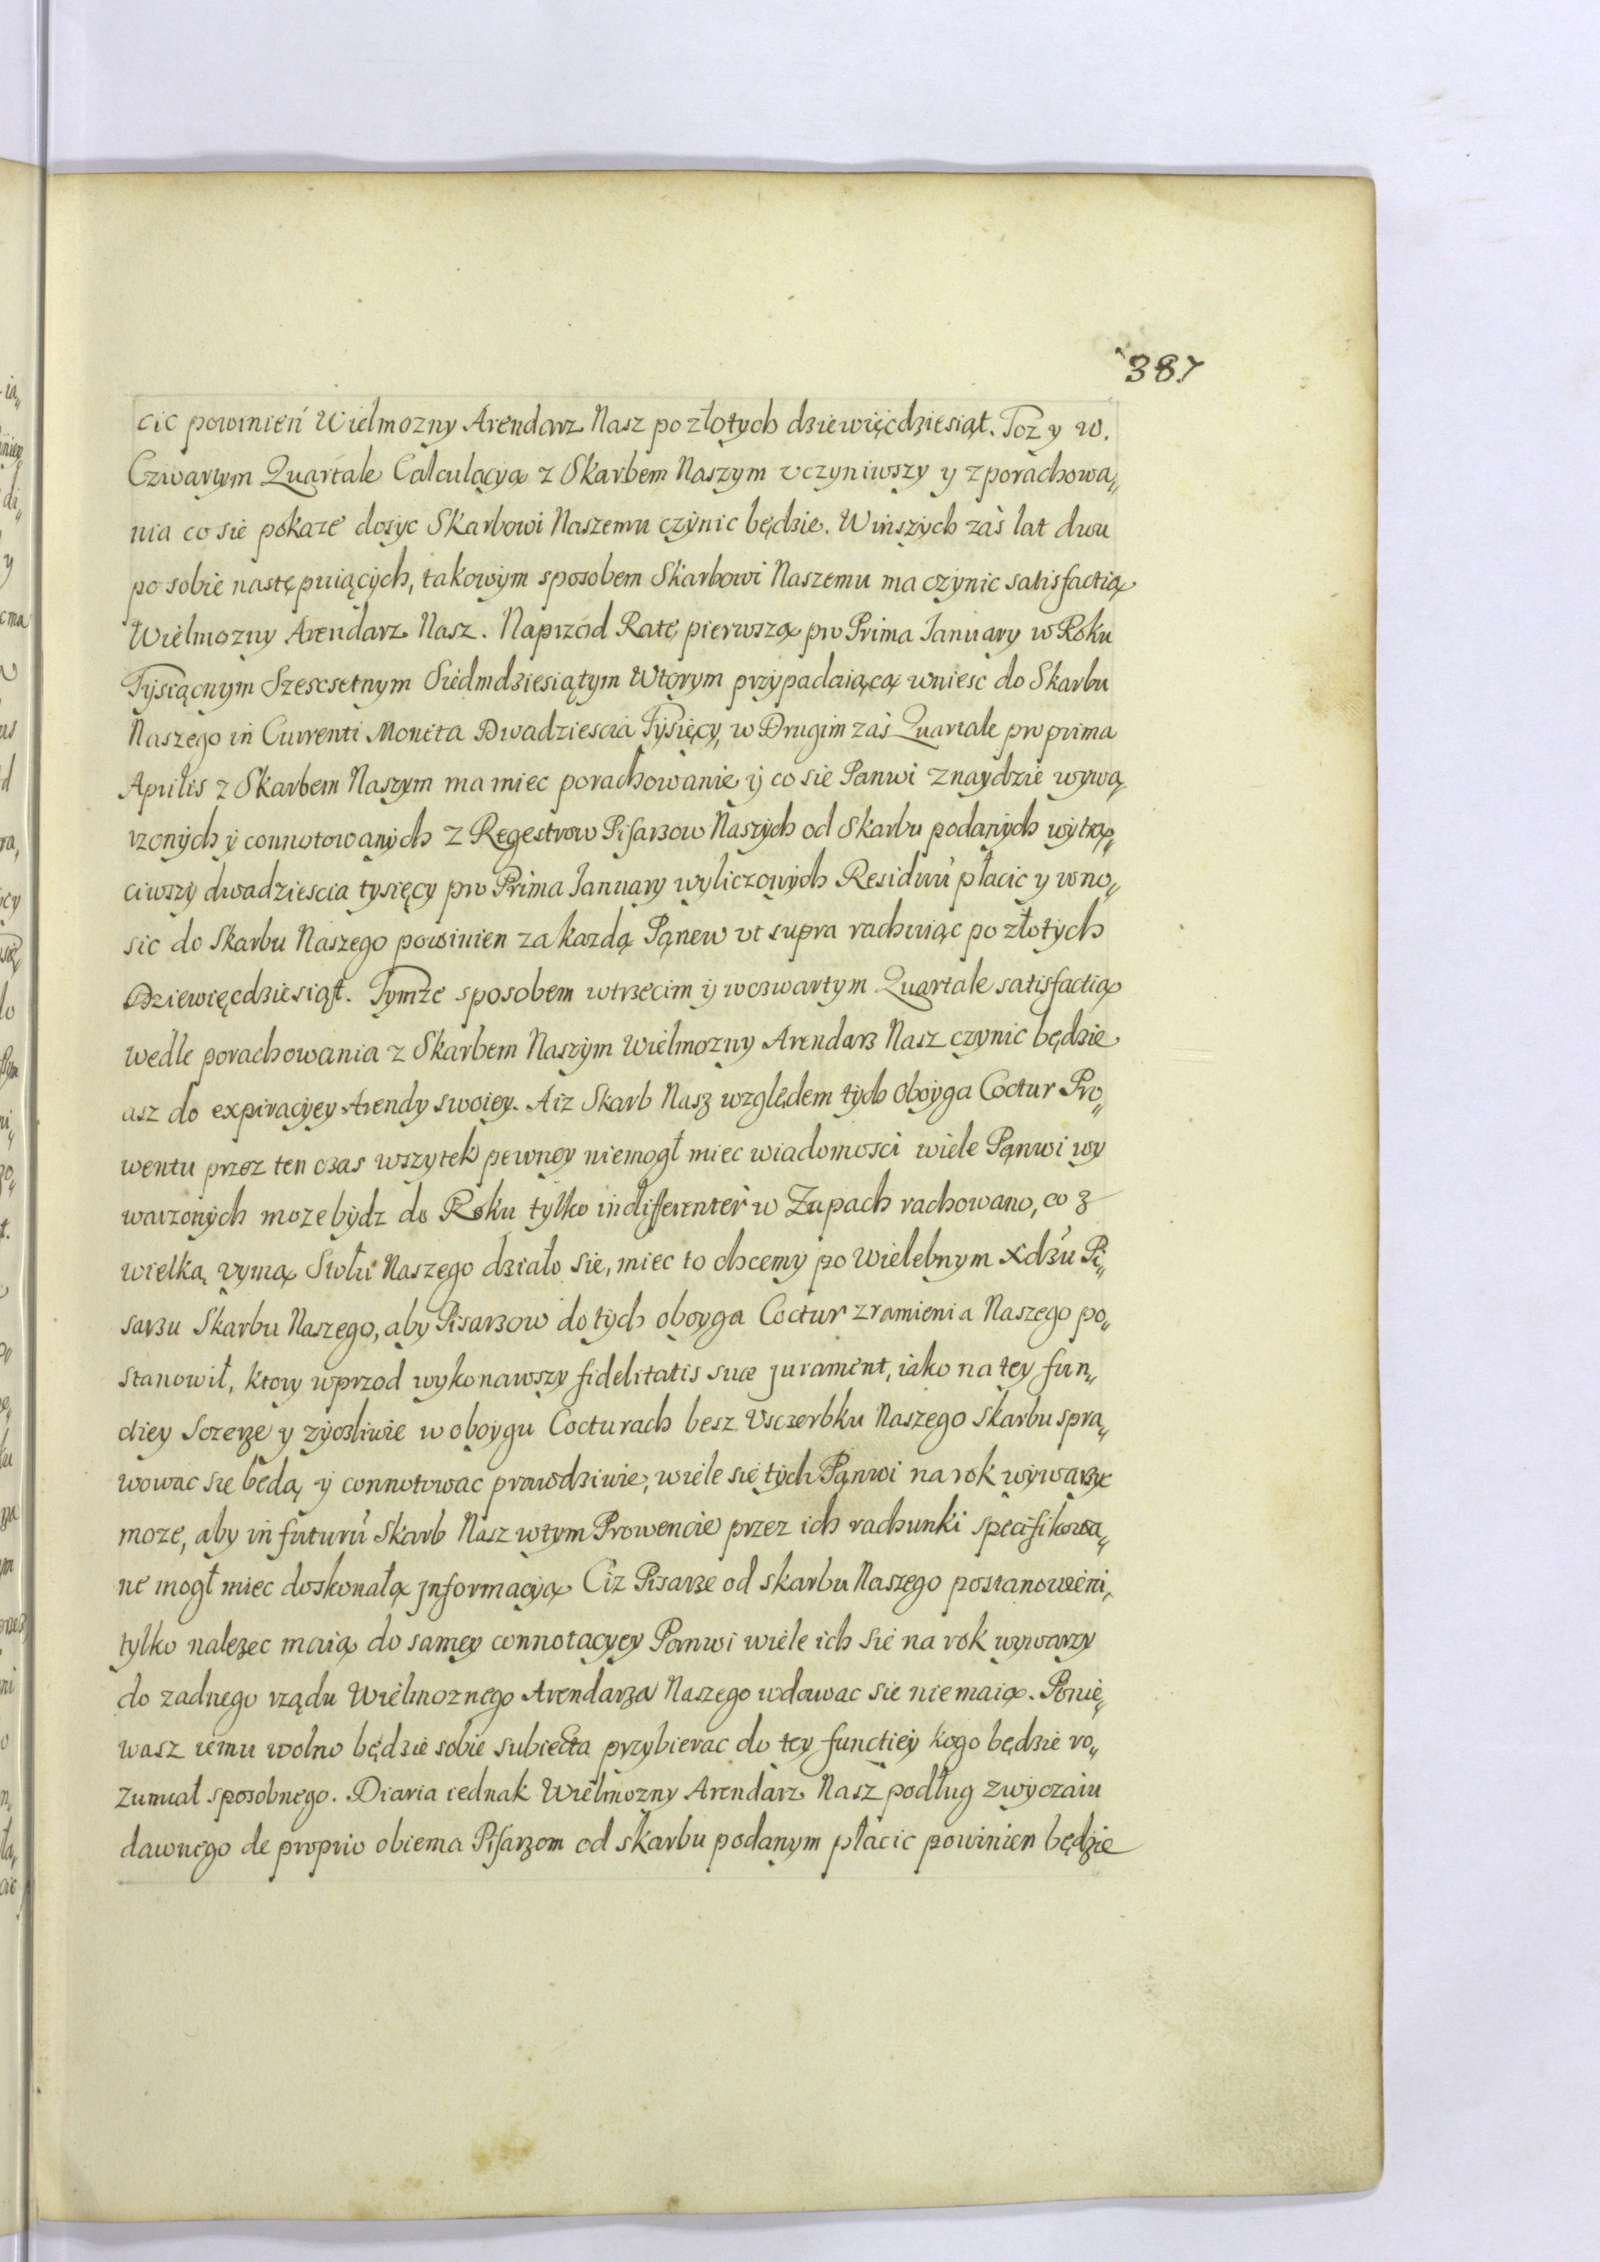 387
cic powinień Wielmozny Arendarz Nasz po złotych dziewięćdziesiąt. Toz y w.
Czwartym Quartale Calculącyą z Skarbem Naszym vczyniwszy y z porachowa„
nia co sie pokaze dosyc Skarbowi Naszemu czynic będzie. W inszych zaś lat dwu
po sobie następuiących, takowym sposobem Skarbowi Naszemu ma czynic satisfactią
Wielmozny Arendarz Nasz. Naprzód Ratę pierwszą pro Prima January w Roku
Tysiącnym Szescsetnym Siedmdziesiątym Wtorym przypadaiącą wniesc do Skarbu
Naszego in Currenti Moneta Dwadziescia Tysięcy, w Drugim zaś Quartale pro prima
Aprilis z Skarbem Naszym ma miec porachowanie y co sie Panwi znaydzie wywa„
rzonych y connotowanych z Regestrow Pisarzow Naszych od Skarbu podanych wytrą„
ciwszy dwadziescia tysięcy pro Prima January wyliczonych Residuũ płacic y wno„
sic do Skarbu Naszego powinien za kazdą Pąnew vt supra rachuiąc po złotych
Dziewięcdziesiąt. Tymze sposobem w trzecim y w czwartym Quartale satisfactią
wedle porachowania z Skarbem Naszym Wielmozny Arendarz Nasz czynic będzie
asz do expiracyey Arendy swoiey. A iz Skarb Nasz względem tych oboyga Coctur Pro„
wentu przez ten czas wszytek pewney niemogł miec wiadomosci wiele Pąnwi wy
warzonych moze bydz do Roku tylko indifferenter w Zupach rachowano, co z
wielką vymą Stołu Naszego działo sie, miec to chcemy po Wielebnym Xdzu Pi„
sarzu Skarbu Naszego, aby Pisarzow do tych oboyga Coctur z ramienia Naszego po„
stanowił, ktory wprzod wykonawszy fidelitatis suæ jurament, iako na tey fun„
ctiey Sczerze y zyczliwie w oboygu Cocturach besz Vsczerbku Naszego Skarbu spra„
wowac się będą y connotowac prawdziwie, wiele się tych Pąnwi na rok wywarzyc
moze, aby in futurũ Skarb Nasz w tym Prowencie przez ich rachunki specifikowa„
ne mogł miec doskonałą jnformacyą Ciz Pisarze od skarbu Naszego postanowieni,
tylko nalezec maią do samey connotacyey Panwi wiele ich sie na rok wywarzy
do zadnego rządu Wielmoznego Arendarza Naszego wdawac sie nie maią. Ponie„
wasz iemu wolno będzie sobie subiecta przybierac do tey functiey kogo będzie ro„
zumiał sposobnego. Diaria iednak Wielmozny Arendarz Nasz podług zwyczaiu
dawnego de proprio obiema Pisarzom od skarbu podanym płacic powinien będzie